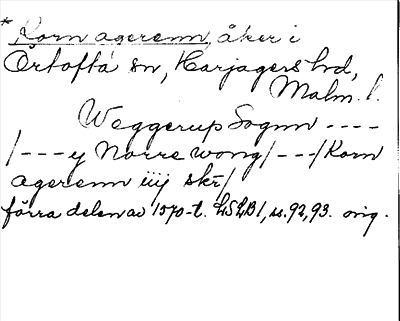 * Korn agerenn, åker i
Örtofta sn, Harjagers hd,
Malm. l.
Weggerup Sognn ----
/---y Norre wong/---/Korn
agerenn iiij skr/
förra delen av 1570-t. LSLB1, ss. 92, 93. orig.